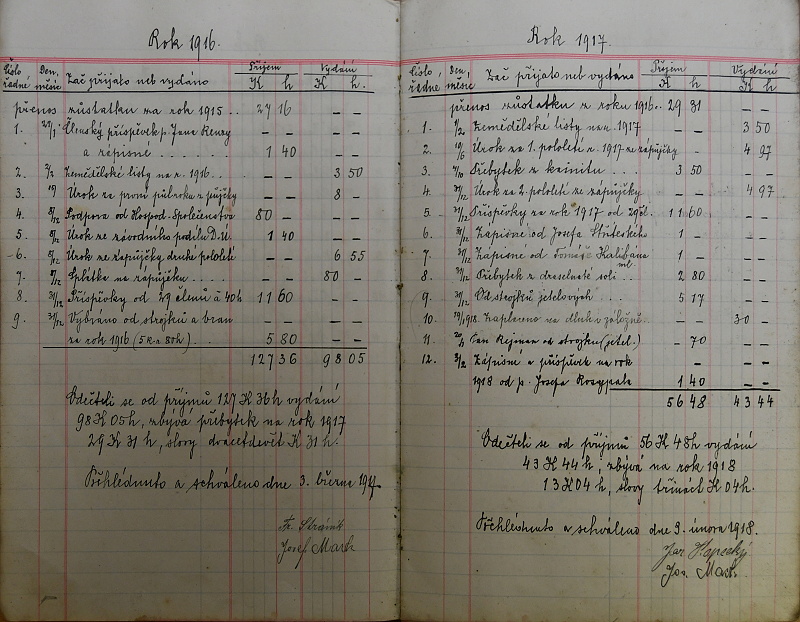 Rok 1916.
Číslo řadné Den, měsíc Zač přijato neb vydáno Příjem K h Vydání K h.
přenos zůstatku za rok 1915 . . 27 16 — —
1. Členský příspěvek p. Jana
a zápisné . . . . . . . 1 40 — —
2. 2/2 Zemědělské listy na r. 1916. . . — — 3 50
3. Úrok za první půlroku z půjčky — — 8 —
4. Podpora od Hospod. Společenstva 80 — — —
5. Úrok ze závodního podílu D.U. 1 40 — —
6. Úrok ze zápůjčky druhé pololetí — — 6 55
7. Splátka na zápůjku . . . — — 80 —
8. 31/12 Příspěvky od 29 členů á 40h 11 60 — —
9. 31/12 Vybráno od strojků a bran
za rok 1916 (5 K a 80h) . . 5 80 — —
127 36 98 05
Odečteli se od příjmů 127 K 36h vydání
98 K 05h, zbývá přibytek na rok 1917
29 K 31 h, slovy dvacetdevět K 31 h.
Přehlédnuto a schváleno dne 3. března 1917.
Josef Mach
Rok 1917.
Číslo řadné Den, měsíc Zač přijato neb vydáno Příjem K h Vydání K h
přenos zůstatku z roku 1916 . . 29 31 — —
1. 1/2 Zemědělské listy na r. 1917 — — 3 50
2. Úrok za 1. pololetí r. 1917 ze zápůjčky — — 4 97
3. Přibytek z kainitu . . . 3 50 — —
4. 31/12 Úrok za 2. pololetí ze zápůjčky — — 4 97
5. 31/12 Příspěvky za rok 1917 od 29 čl. 11 60 — —
6. 31/12 Zápisné od Josefa Stříteského 1 — — —
7. Zápisné od Tomáše Kalibána ml. 1 — — —
8. 31/12 Přibytek z draselnaté soli . . 2 80 — —
9. 31/12 Od strojků jetelových . . . 5 17 — —
10. 1918. Zaplaceno na dluh v záložně — — 30 —
11. Jan od strojku (jetel.) — 70 — —
12. 3/2 Zápisné a příspěvek na rok
1918 od p. Josefa Rozsypala 1 40 — —
56 48 43 44
Odečteli se od příjmů 56 K 48h vydání
43 K 44 h, zbývá na rok 1918
13 K 04 h, slovy třináct K 04h.
Přehlédnuto a schváleno dne 3. února 1918.
Jos. Mach